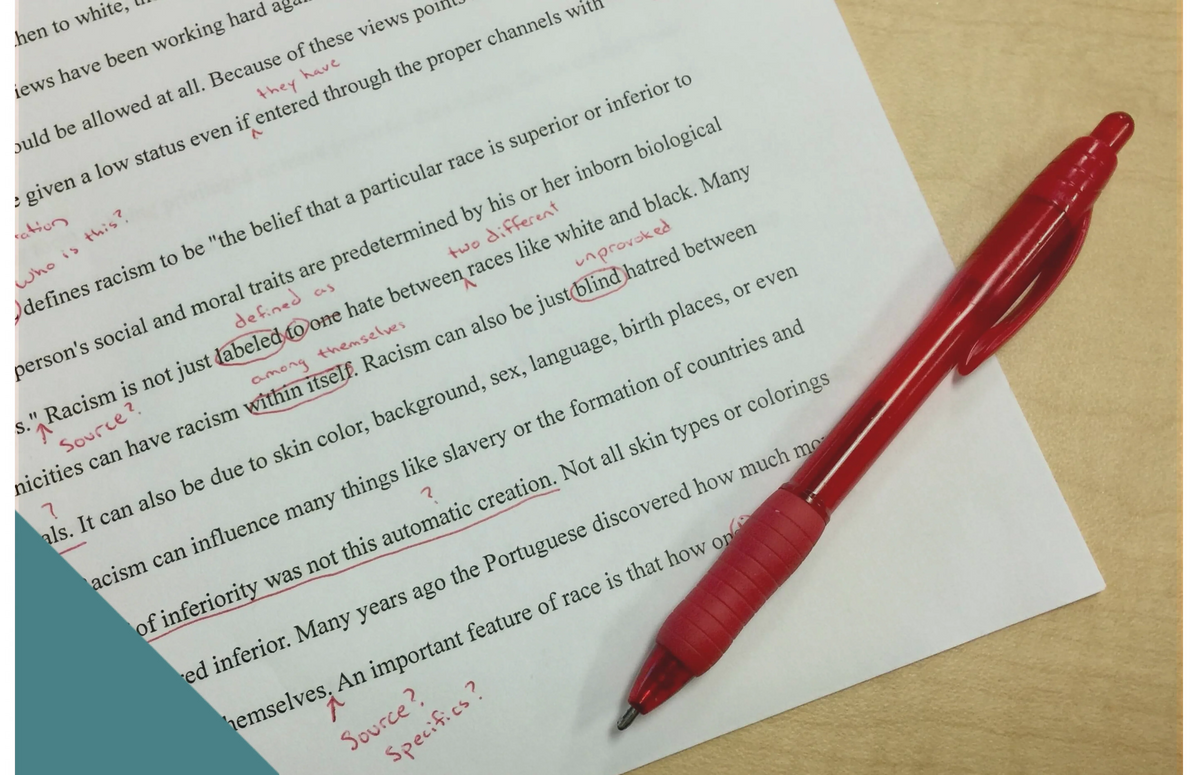 then to white, th
iews have been working hard agai
ould be allowed at all. Because of these views points
they have
e given a low status even if entered through the proper channels with
ation
who is this?
defines racism to be "the belief that a particular race is superior or inferior to
person's social and moral traits are predetermined by his or her inborn biological
defined as
two different
s." Racism is not just labeled to one hate between races like white and black. Many
Source?
among themselves
unprovoked
nicities can have racism within itself. Racism can also be just blind hatred between
?
als. It can also be due to skin color, background, sex, language, birth places, or even
acism can influence many things like slavery or the formation of countries and
?
of inferiority was not this automatic creation. Not all skin types or colorings
ed inferior. Many years ago the Portuguese discovered how much mo
hemselves. An important feature of race is that how on
Source?
Specifics?